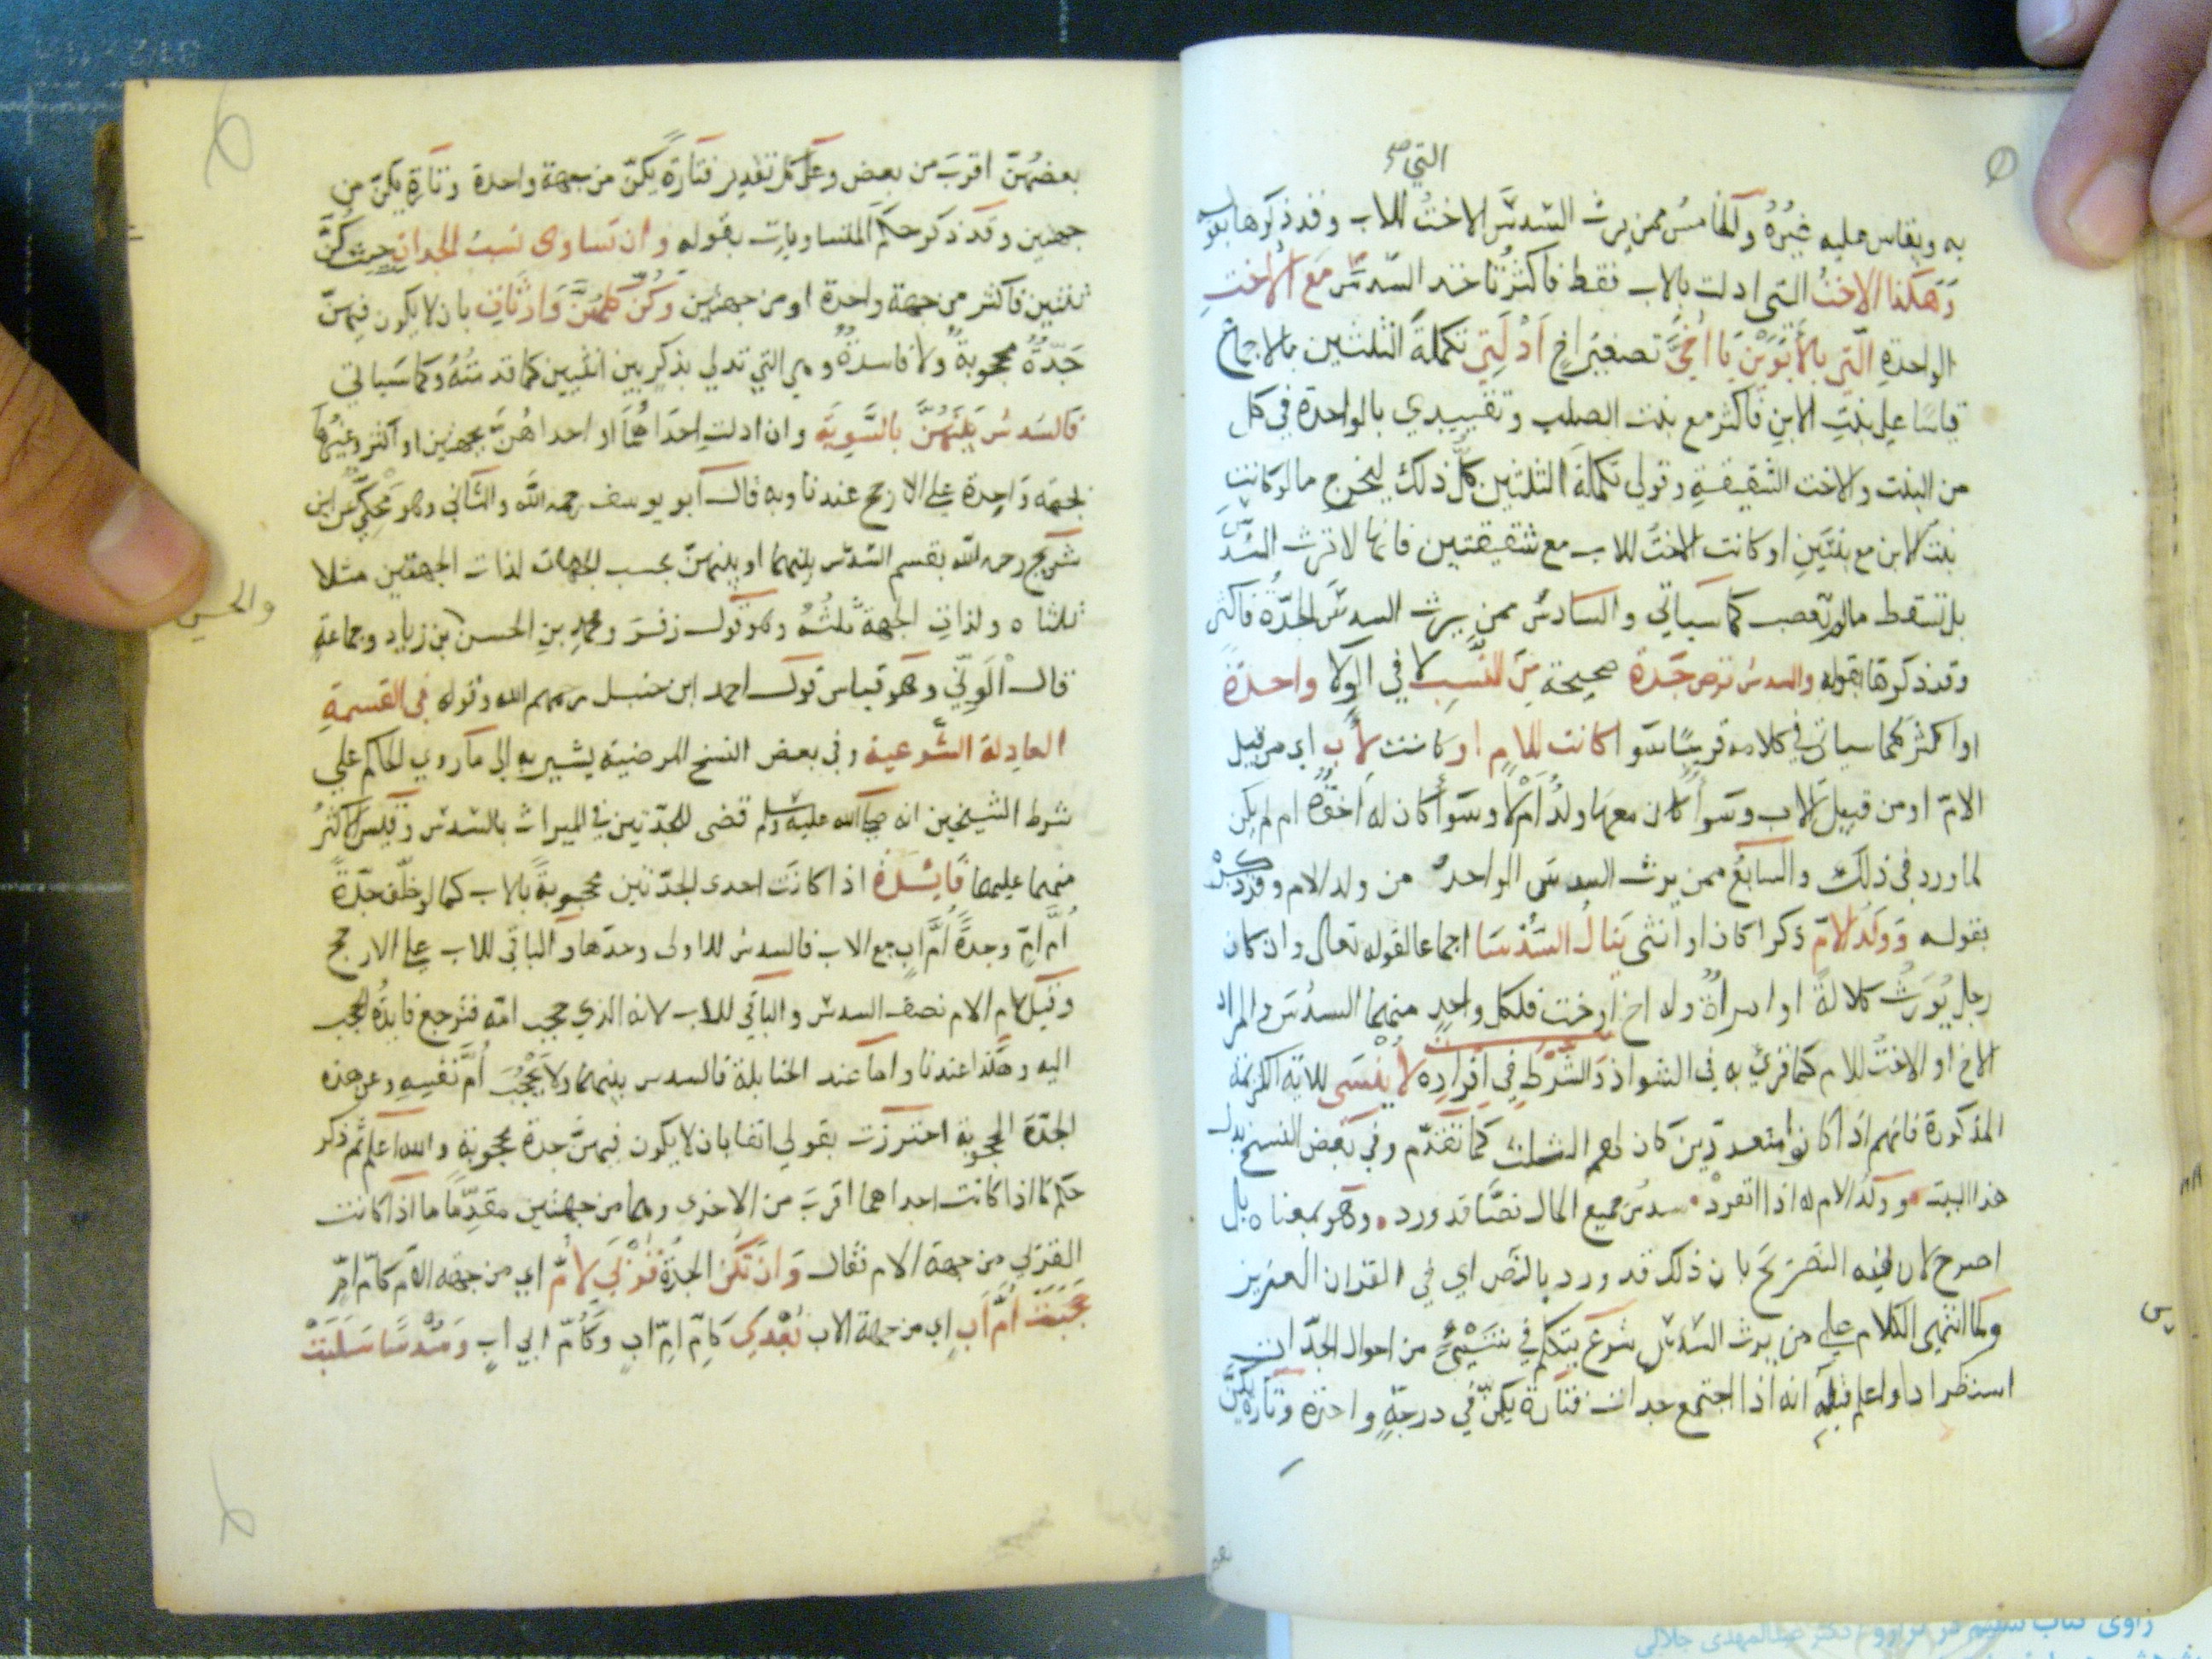 التي صح
به ويقاس عليه غيره والخامس ممن يرث السدس الاخت للاب وقد ذكرها بقوله
وهكذا الاخت التي ادلت بالاب فقط فاكثر تاخذ السدس مع الاخت
الواحدة التي بالابوين يا اخي تصغير اخ ادلت تكملة الثلثين بالاجماع
قياسا على بنت الابن فاكثر مع بنت الصلب وتقييدي بالواحدة في كل
من البنت والاخت الشقيقة وقولي تكملة الثلثين كل ذلك ليخرج ما لو كانت
بنت الابن مع بنتين او كانت الاخت للاب مع شقيقتين فانها لا ترث السدس
بل تسقط ما لم تعصب كما سياتي والسادس ممن يرث السدس الجدة فاكثر
وقد ذكرها بقوله والسدس فرض جدة صحيحة من النسب لا في الولا واحدة
او اكثر كما سياتي في كلامه قريبا سوا كانت للام او كانت لاب اي من قبيل
الام او من قبيل الاب وسوأ كان معها ولد ام لا وسوأ كان له اخوة ام لم يكن
لما ورد في ذلك والسابع ممن يرث السدس الواحد من ولد الام وقد ذكره
بقوله وولد الام ذكرا كان او انثى ينال السدسا اجماعا لقوله تعالى وان كان
رجل يورث كلالة او امراة وله اخ او اخت فلكل واحد منهما السدس المراد
الاخ او الاخت للام كما قرئ به في الشواذ والشرط في افراده لا ينسى للاية الكريمة
المذكورة فانهم اذا كانوا متعددين كان لهم الثلث كما تقدم وفي بعض النسخ بدل
هذا البيت وولد الام له اذا انفرد سدس جميع المال نصا قد ورد وهو بمعناه بل
اصرح لان فيه التصريح بان ذلك قد ورد بالنص اي في القران العزيز
ولما انتهى الكلام على من يرث السدس شرع يتكلم في شيئ من احوال الجدات
استطرادا واعلم قبله انه اذا اجتمع جدات فتارة يكن في درجة واحدة وتارة يكن
بعضهن اقرب من بعض وعلى كل تقدير فتارة يكن من جهة واحدة وتارة يكن من
جهتين وقد ذكر حكم المتساويات بقوله وان تساوى نسب الجدات حيث كن
ثنتين فاكثر من جهة واحدة او من جهتين وكن كلهن وارثات بان لا يكون فيهن
جدة محجوبة ولا فاسدة وهي التي تدلي بذكر بين انثيين كما قدمته وكما سياتي
فالسدس بينهن بالسوية وان ادلت احداهما او احداهن بجهتين او اكثر وغيرها
بجهة واحدة على الارجح عندنا وبه قال ابو يوسف رحمه الله والثاني وهو محكي عن ابن
شريح رحمه الله يقسم السدس بينهما او بينهن بحسب الجهات لذات الجهتين مثلا
ثلثاه ولذات الجهة ثلثه وهو قول زفر ومحمد بن الحسن بن زياد وجماعة
والحسن
قال الوني وهو قياس قول احمد ابن حنبل رحمهم الله وقوله في القسمة
العادلة الشرعية وفي بعض النسخ المرضية يشير به الى ما روي الحاكم على
شرط الشيخين انه صلى الله عليه وسلم قضى للجدتين في الميراث بالسدس وقيس الاكثر
منهما عليهما فايدة اذا كانت احدى الجدتين محجوبة بالاب كما لو خلف جدة
ام ام وجدة ام اب مع الاب فالسدس للاولى وحدها والباقي للاب على الارجح
وقيل لام الام نصف السدس والباقي للاب لانه الذي حجب امه فترجع فايدة الحجب
اليه وهذا عندنا واما عند الحنابلة فالسدس بينهما ولا يحجب ام نفسه وعن هذه
الجدة المحجوبة احترزت بقولي انفا بان لا يكون فيهن جدة محجوبة والله اعلم ثم ذكر
حكم ما اذا كانت احداهما اقرب من الاخرى وهما من جهتين مقدما ما اذا كانت
القربى من جهة الام فقال وان تكن الجدة قربى لام اي من جهة الام كام ام
حجبت ام اب اي من جهة الاب بعدى كام ام اب وكام ابي اب وسدسا سلبت